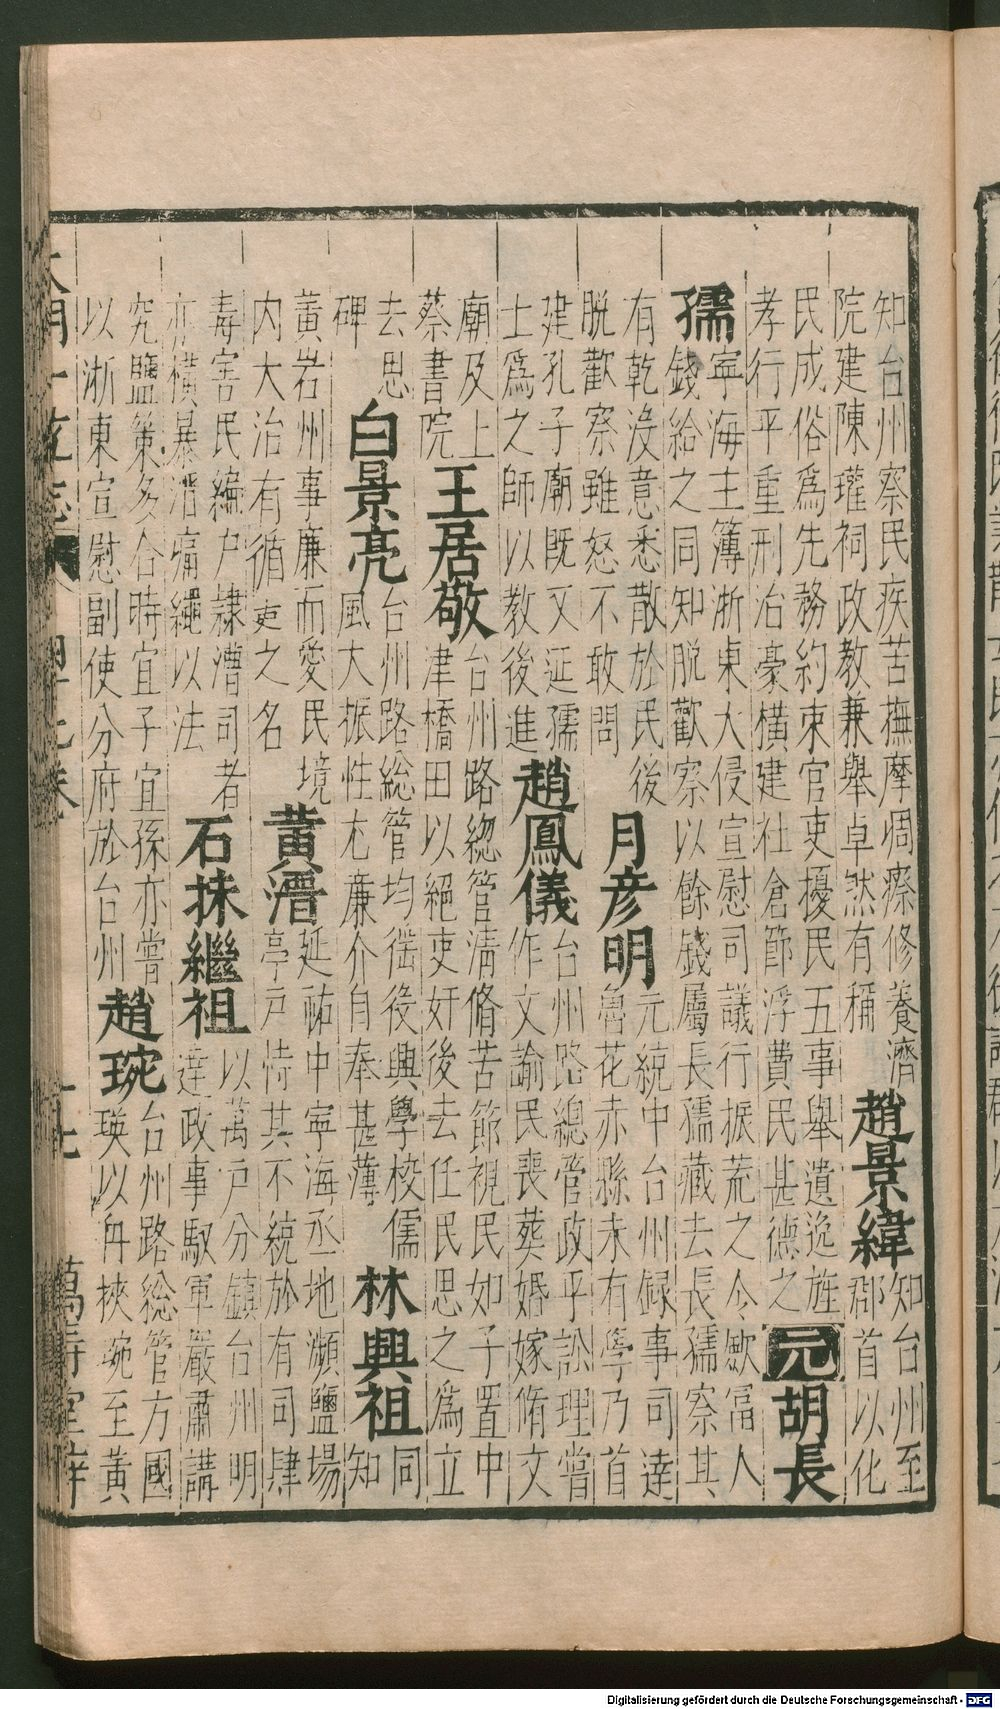 知台州察民疾苦撫摩凋瘵修養濟
院建陳瓘祠政教兼舉卓然有稱
趙景緯
知台州至
郡首以化
民成俗爲先務約束官吏擾民五事舉遺逸旌
孝行平重刑治豪橫建社倉節浮費民甚德之
元
胡長
孺
寧海主簿浙東大侵宣慰司議行振荒之令歛富人
錢給之同知脫歡察以餘錢屬長孺藏去長孺察其
有乾沒意悉散於民後
脫歡察雖怒不敢問
月彦明
元統中台州録事司達
魯花赤縣未有學乃首
建孔子廟既又延孺
士爲之師以教後進
趙鳳儀
台州路總管政乎訟理嘗
作文諭民喪葬婚嫁脩文
廟及上
蔡書院
王居敬
台州路總管淸脩苦節視民如子置中
津橋田以絕吏奸後去任民思之爲立
去思
碑
白景亮
台州路総管均徭役興學校儒
風大振性尤廉介自奉甚薄
林興祖
同
知
黃岩州事廉而愛民境
內大治有循吏之名
黃溍
延祐中寧海丞地瀕鹽場
亭戶恃其不統於有司肆
毒害民編戶隷漕司者
亦橫暴溍痛繩以法
石抹繼祖
以萬戶分鎮台州明
達政事馭軍嚴肅講
究鹽策多合時宜子宜孫亦嘗
以浙東宣慰副使分府於台州
趙琬
台州路総管方國
瑛以舟挾琬至黃
大明一統志
十七
萬壽堂
Digitalisierung gefördert durch die Deutsche Forschungsgemeinschaft - DFG